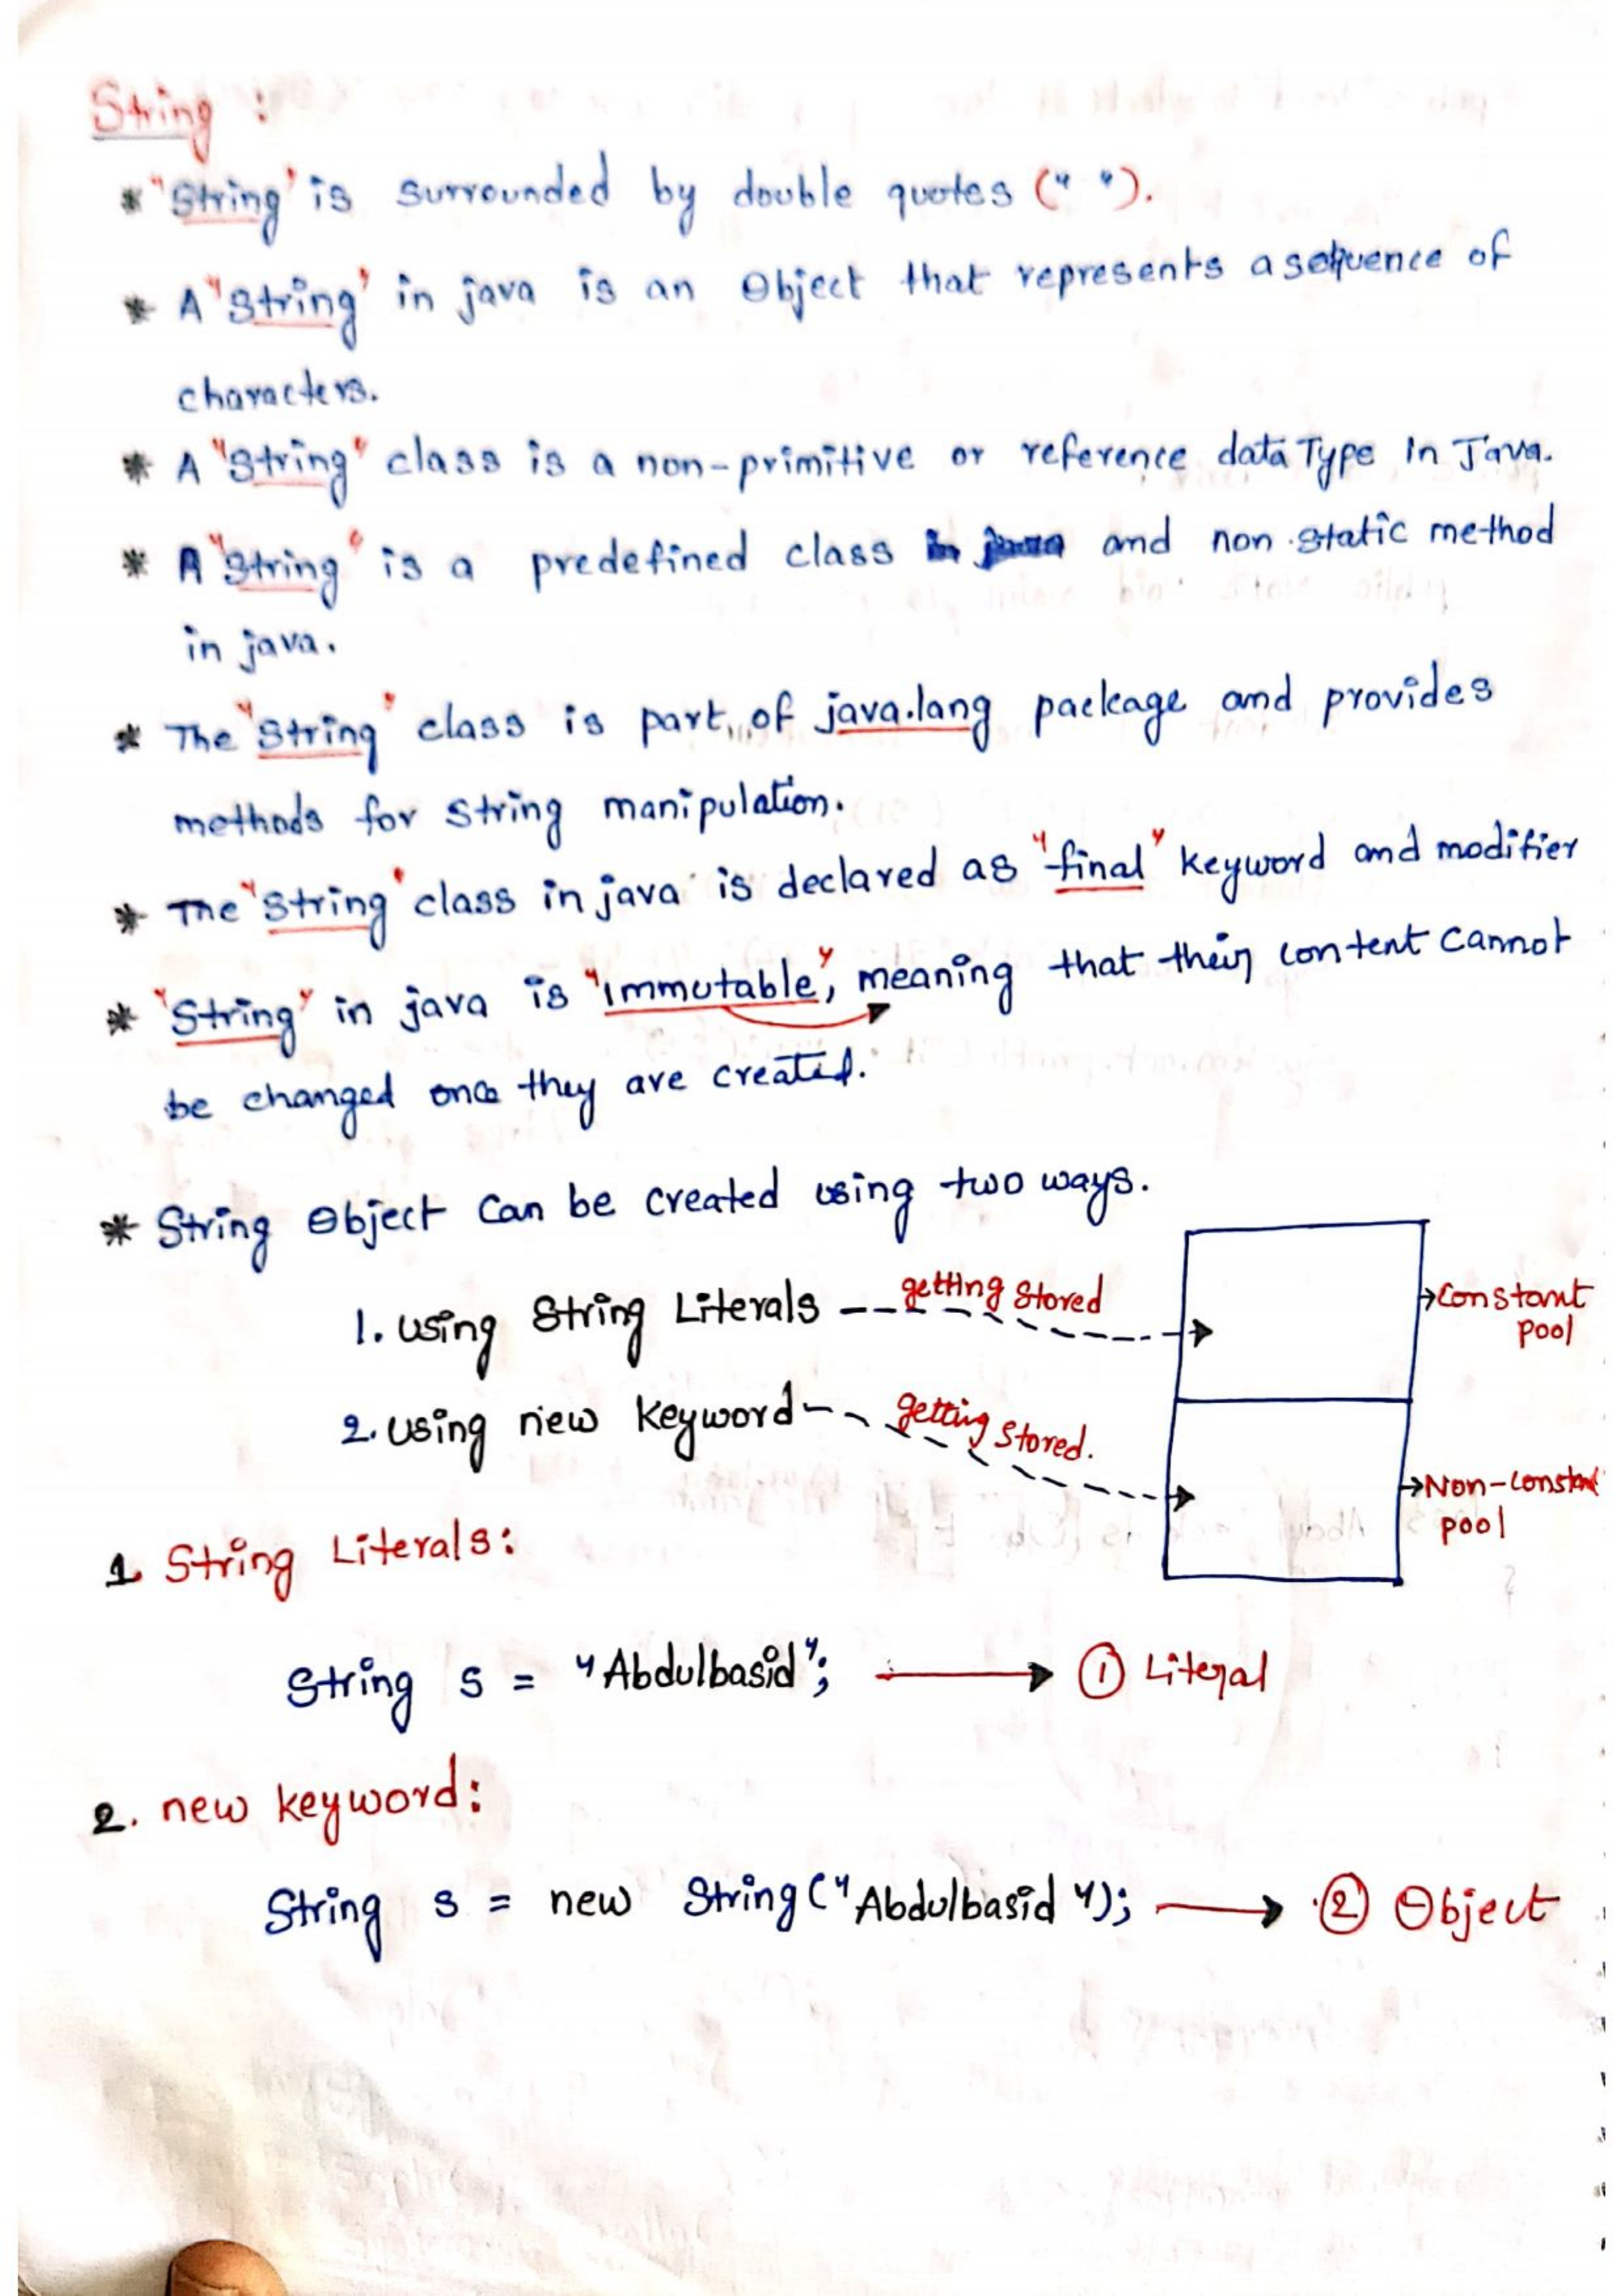 String :
* "String" is surrounded by double quotes (" ").
* A "String" in java is an Object that represents a sequence of
characters.
* A "String" class is a non-primitive or reference data Type in Java.
* A "String" is a predefined class and non static method
in java.
* The "String" class is part of java.lang package and provides
methods for String manipulation.
* The "String" class in java is declared as "final" keyword and modifier
* "String" in java is "immutable", meaning that their content cannot
be changed once they are created.
* String Object Can be created using two ways.
1. using String Literals
getting Stored
Constant
pool
2. using new keyword
getting Stored.
Non-constant
pool
1 String Literals:
String s = "Abdulbasid"; ① Literal
2. new keyword:
String s = new String("Abdulbasid"); ② Object